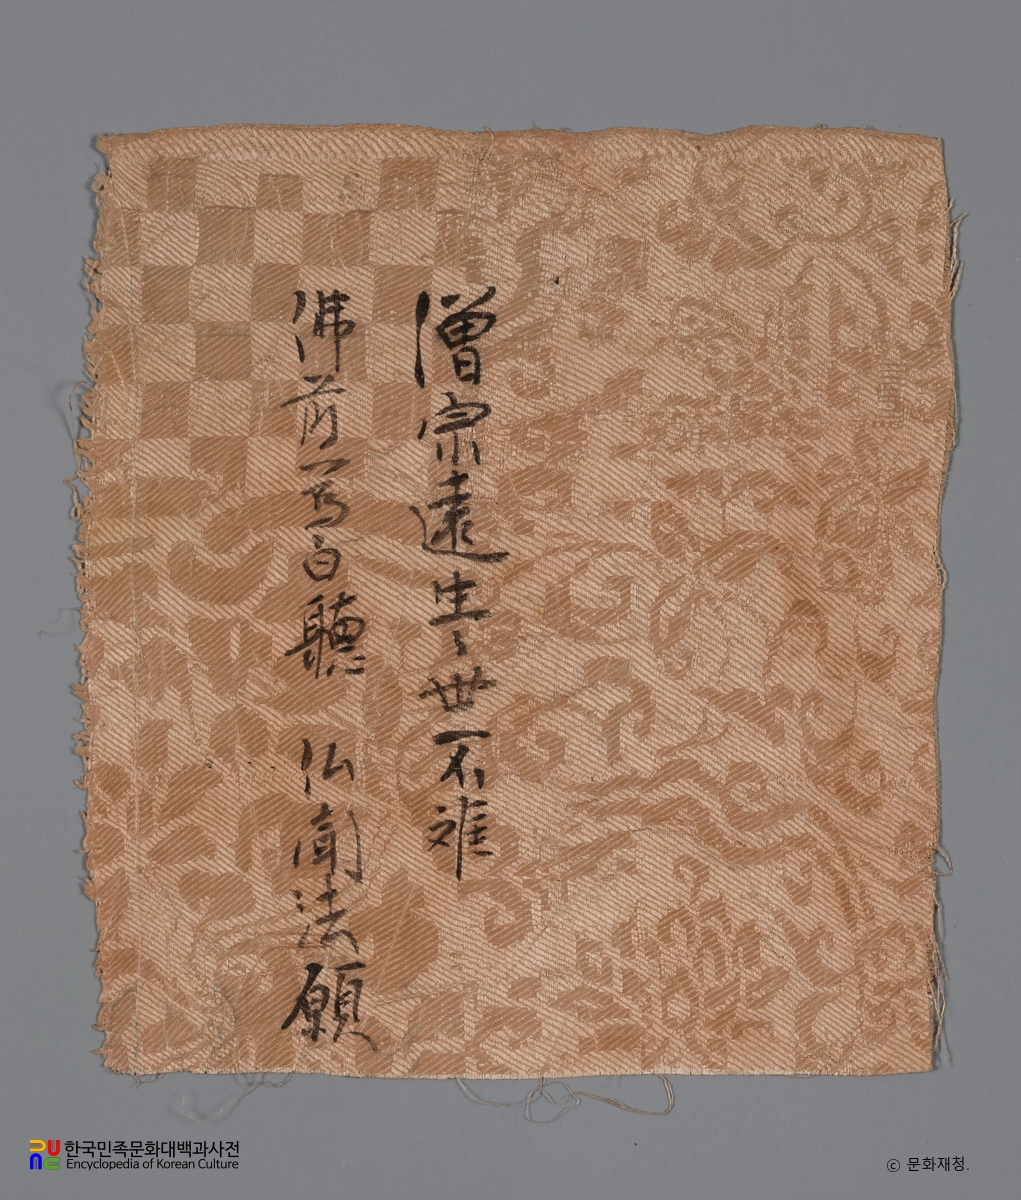 僧宗遠生〻世不離
佛前耳白聽 仏聞法願
한국민족문화대백과사전
Encyclopedia of Korean Culture
© 문화재청.